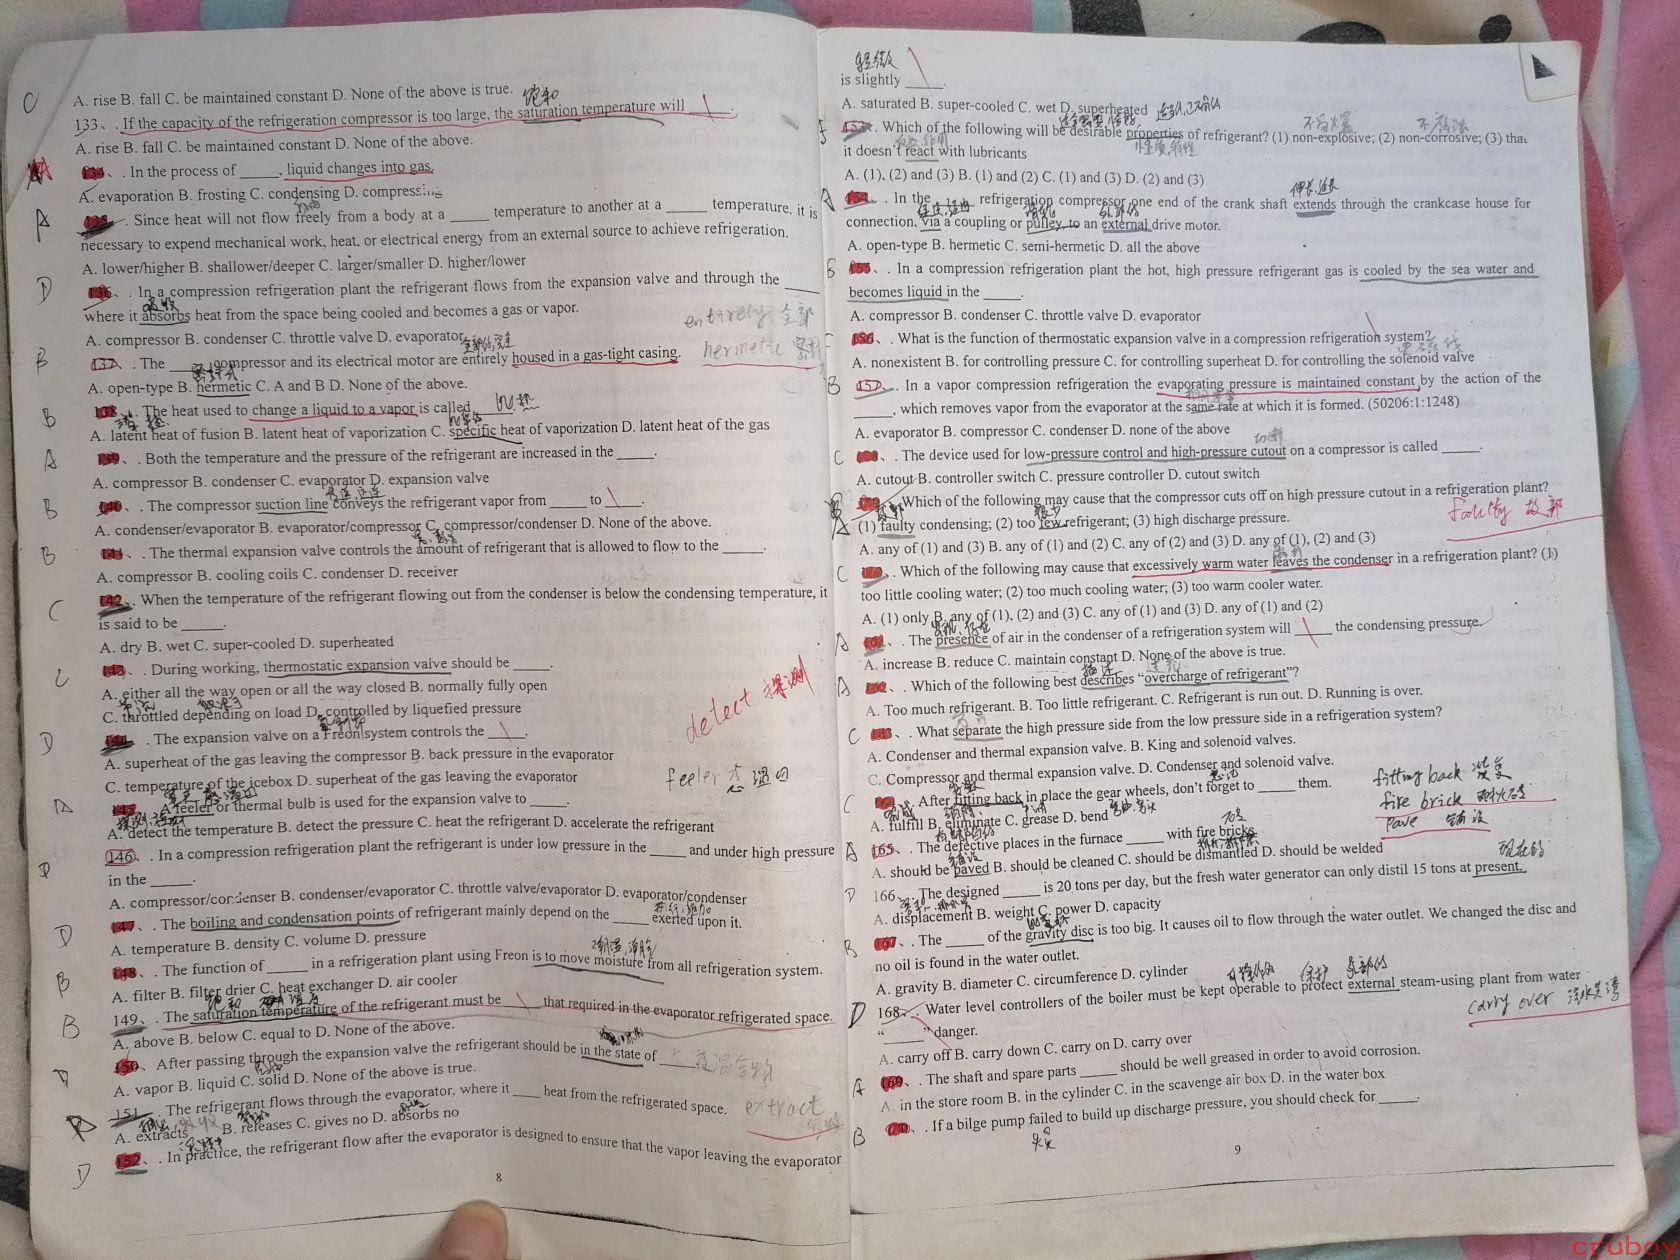 C
A. rise B. fall C. be maintained constant D. None of the above is true.
饱和
133、. If the capacity of the refrigeration compressor is too large, the saturation temperature will ____.
A. rise B. fall C. be maintained constant D. None of the above.
A 134、. In the process of _____, liquid changes into gas.
A. evaporation B. frosting C. condensing D. compressing
A 135、. Since heat will not flow freely from a body at a _____ temperature to another at a _____ temperature, it is
necessary to expend mechanical work, heat, or electrical energy from an external source to achieve refrigeration.
A. lower/higher B. shallower/deeper C. larger/smaller D. higher/lower
D 136、. In a compression refrigeration plant the refrigerant flows from the expansion valve and through the _____
吸收
where it absorbs heat from the space being cooled and becomes a gas or vapor.
entirely 全部
A. compressor B. condenser C. throttle valve D. evaporator
B 137、. The _____ compressor and its electrical motor are entirely housed in a gas-tight casing.
hermetic
A. open-type B. hermetic C. A and B D. None of the above.
B 138、. The heat used to change a liquid to a vapor is called
A. latent heat of fusion B. latent heat of vaporization C. specific heat of vaporization D. latent heat of the gas
A 139、. Both the temperature and the pressure of the refrigerant are increased in the _____.
A. compressor B. condenser C. evaporator D. expansion valve
B 140、. The compressor suction line conveys the refrigerant vapor from _____ to _____.
A. condenser/evaporator B. evaporator/compressor C. compressor/condenser D. None of the above.
B 141、. The thermal expansion valve controls the amount of refrigerant that is allowed to flow to the _____.
A. compressor B. cooling coils C. condenser D. receiver
C 142、. When the temperature of the refrigerant flowing out from the condenser is below the condensing temperature, it
is said to be _____.
A. dry B. wet C. super-cooled D. superheated
C 143、. During working, thermostatic expansion valve should be _____.
A. either all the way open or all the way closed B. normally fully open
C. throttled depending on load D. controlled by liquefied pressure
detect 探测
D 144、. The expansion valve on a Freon system controls the _____.
A. superheat of the gas leaving the compressor B. back pressure in the evaporator
C. temperature of the icebox D. superheat of the gas leaving the evaporator
feeler 感温包
A 145、. A feeler or thermal bulb is used for the expansion valve to _____.
A. detect the temperature B. detect the pressure C. heat the refrigerant D. accelerate the refrigerant
D 146、. In a compression refrigeration plant the refrigerant is under low pressure in the _____ and under high pressure
in the _____.
A. compressor/condenser B. condenser/evaporator C. throttle valve/evaporator D. evaporator/condenser
D 147、. The boiling and condensation points of refrigerant mainly depend on the _____ exerted upon it.
A. temperature B. density C. volume D. pressure
B 148、. The function of _____ in a refrigeration plant using Freon is to move moisture from all refrigeration system.
A. filter B. filter drier C. heat exchanger D. air cooler
B 149、. The saturation temperature of the refrigerant must be _____ that required in the evaporator refrigerated space.
A. above B. below C. equal to D. None of the above.
D 150、 After passing through the expansion valve the refrigerant should be in the state of
A. vapor B. liquid C. solid D. None of the above is true.
151、. The refrigerant flows through the evaporator, where it ____ heat from the refrigerated space.
extract
A. extracts B. releases C. gives no D. absorbs no
D 152、. In practice, the refrigerant flow after the evaporator is designed to ensure that the vapor leaving the evaporator
8
轻微
is slightly _____.
A. saturated B. super-cooled C. wet D. superheated
153、. Which of the following will be desirable properties of refrigerant? (1) non-explosive; (2) non-corrosive; (3) that
it doesn't react with lubricants
A. (1), (2) and (3) B. (1) and (2) C. (1) and (3) D. (2) and (3)
A 154、. In the _____ refrigeration compressor one end of the crank shaft extends through the crankcase house for
connection, via a coupling or pulley, to an external drive motor.
A. open-type B. hermetic C. semi-hermetic D. all the above
B 155、. In a compression refrigeration plant the hot, high pressure refrigerant gas is cooled by the sea water and
becomes liquid in the _____.
A. compressor B. condenser C. throttle valve D. evaporator
156、. What is the function of thermostatic expansion valve in a compression refrigeration system?
A. nonexistent B. for controlling pressure C. for controlling superheat D. for controlling the solenoid valve
B 157、. In a vapor compression refrigeration the evaporating pressure is maintained constant by the action of the
_____, which removes vapor from the evaporator at the same rate at which it is formed. (50206:1:1248)
A. evaporator B. compressor C. condenser D. none of the above
切断
C 158、. The device used for low-pressure control and high-pressure cutout on a compressor is called _____.
A. cutout B. controller switch C. pressure controller D. cutout switch
159、. Which of the following may cause that the compressor cuts off on high pressure cutout in a refrigeration plant?
A (1) faulty condensing; (2) too few refrigerant; (3) high discharge pressure.
faulty 故障
A. any of (1) and (3) B. any of (1) and (2) C. any of (2) and (3) D. any of (1), (2) and (3)
C 160、. Which of the following may cause that excessively warm water leaves the condenser in a refrigeration plant? (1)
too little cooling water; (2) too much cooling water; (3) too warm cooler water.
A. (1) only B. any of (1), (2) and (3) C. any of (1) and (3) D. any of (1) and (2)
A 161、. The presence of air in the condenser of a refrigeration system will _____ the condensing pressure.
A. increase B. reduce C. maintain constant D. None of the above is true.
描述
A 162、. Which of the following best describes “overcharge of refrigerant”?
A. Too much refrigerant. B. Too little refrigerant. C. Refrigerant is run out. D. Running is over.
C 163、. What separate the high pressure side from the low pressure side in a refrigeration system?
A. Condenser and thermal expansion valve. B. King and solenoid valves.
C. Compressor and thermal expansion valve. D. Condenser and solenoid valve.
fitting back
C 164、. After fitting back in place the gear wheels, don't forget to _____ them.
fire brick 耐火砖
A. fulfill B. eliminate C. grease D. bend
pave 铺设
A 165、. The defective places in the furnace _____ with fire bricks.
A. should be paved B. should be cleaned C. should be dismantled D. should be welded
现在的
D 166、. The designed _____ is 20 tons per day, but the fresh water generator can only distil 15 tons at present.
A. displacement B. weight C. power D. capacity
B 167、. The _____ of the gravity disc is too big. It causes oil to flow through the water outlet. We changed the disc and
no oil is found in the water outlet.
A. gravity B. diameter C. circumference D. cylinder
保护 外部的
D 168、. Water level controllers of the boiler must be kept operable to protect external steam-using plant from water
“_____” danger.
carry over
A. carry off B. carry down C. carry on D. carry over
A 169、. The shaft and spare parts _____ should be well greased in order to avoid corrosion.
A. in the store room B. in the cylinder C. in the scavenge air box D. in the water box
B 170、. If a bilge pump failed to build up discharge pressure, you should check for _____.
9
cruboy